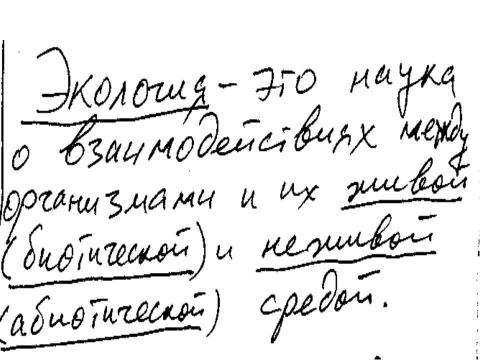 Экология - это наука
о взаимодействиях между
организмами и их живой
(биотической) и неживой
(абиотической) средой.